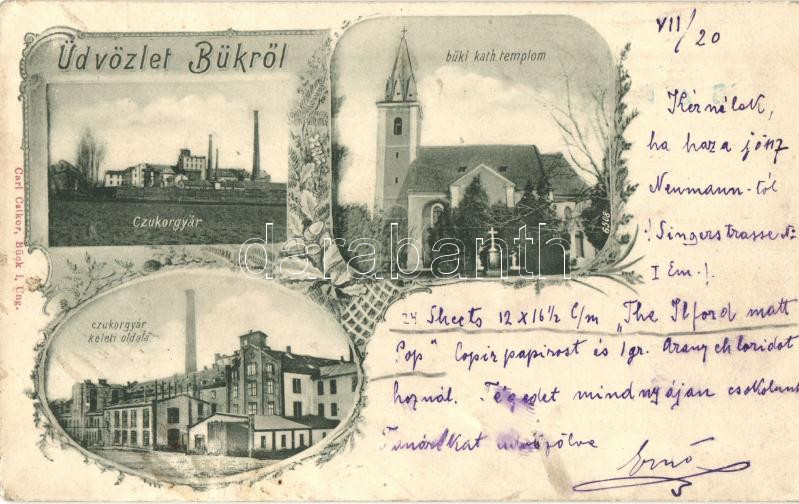 Üdvözlet Bükről
büki kath. templom
Czukorgyár
czukorgyár
keleti oldala
6508
Carl Csikor, Bück i. Ung.
darabanth
VII/20
Kérnélek,
ha haza jösz
Neumann-tól
Singerstrasse No
I Em.
24 Sheets 12 x 16 1/2 C/m "The Ilford matt
Pop" Copir papirost és 1 gr. Aranychloridot
hoznál. Tégedet mindnyájan csokolunk
Ernő